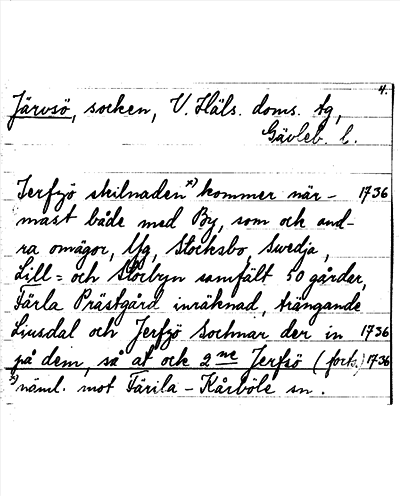 4.
Järvsö, socken, V. Häls. doms. tg,
Gävleb. l.
Jerfsjö skilnaden x) kommer när- 1736
mast både med By, som och and-
ra omägor, Yg, Stocksbo, Swedja,
Lill= och Storbyn samfält 50 gårder,
Färla Prästgård inräknad, trängande
Liusdal och Jerfsjö Sochnar der in 1736
på dem, så at ock 2ne Jerfsö (forts.) 1736
x) näml. mot Färila - Kårböle sn.